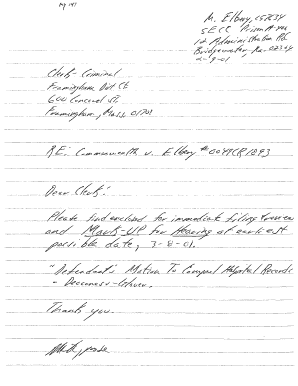 M. Elbery, C57634
SECC
1 Administration Rd.
Bridgewater, Ma. 02324
2-9-01
Clerk-Criminal
Framingham Dist Ct
600 Concord St,
Framingham, Mass. 01701
RE: Commonwealth v. Elbery #0049CR1293
Dear Clerk:
Please find enclosed for immediate filing
and Mark-UP for Hearing at earliest
possible date, 3-8-01.
"Defendant's Motion To Compel Hospital Records
Thank you.